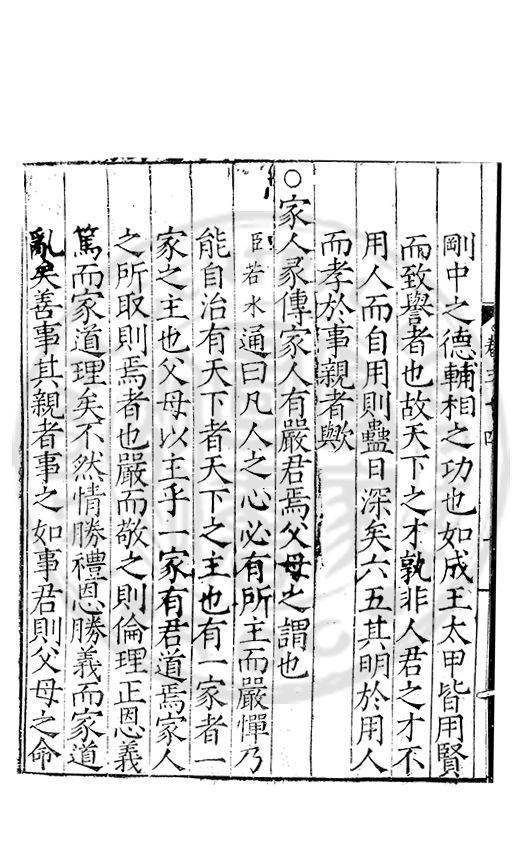 剛中之德輔相之功也如成王太甲皆用賢
而致譽者也故天下之才孰非人君之才不
用人而自用則蠱日深矣六五其明於用人
而孝於事親者歟
○家人彖傳家人有嚴君焉父母之謂也
臣若水通曰凡人之心必有所主而嚴憚乃
能自治有天下者天下之主也有一家者一
家之主也父母以主乎一家有君道焉家人
之所取則焉者也嚴而敬之則倫理正恩義
篤而家道理矣不然情勝禮恩勝義而家道
亂矣善事其親者事之如事君則父母之命